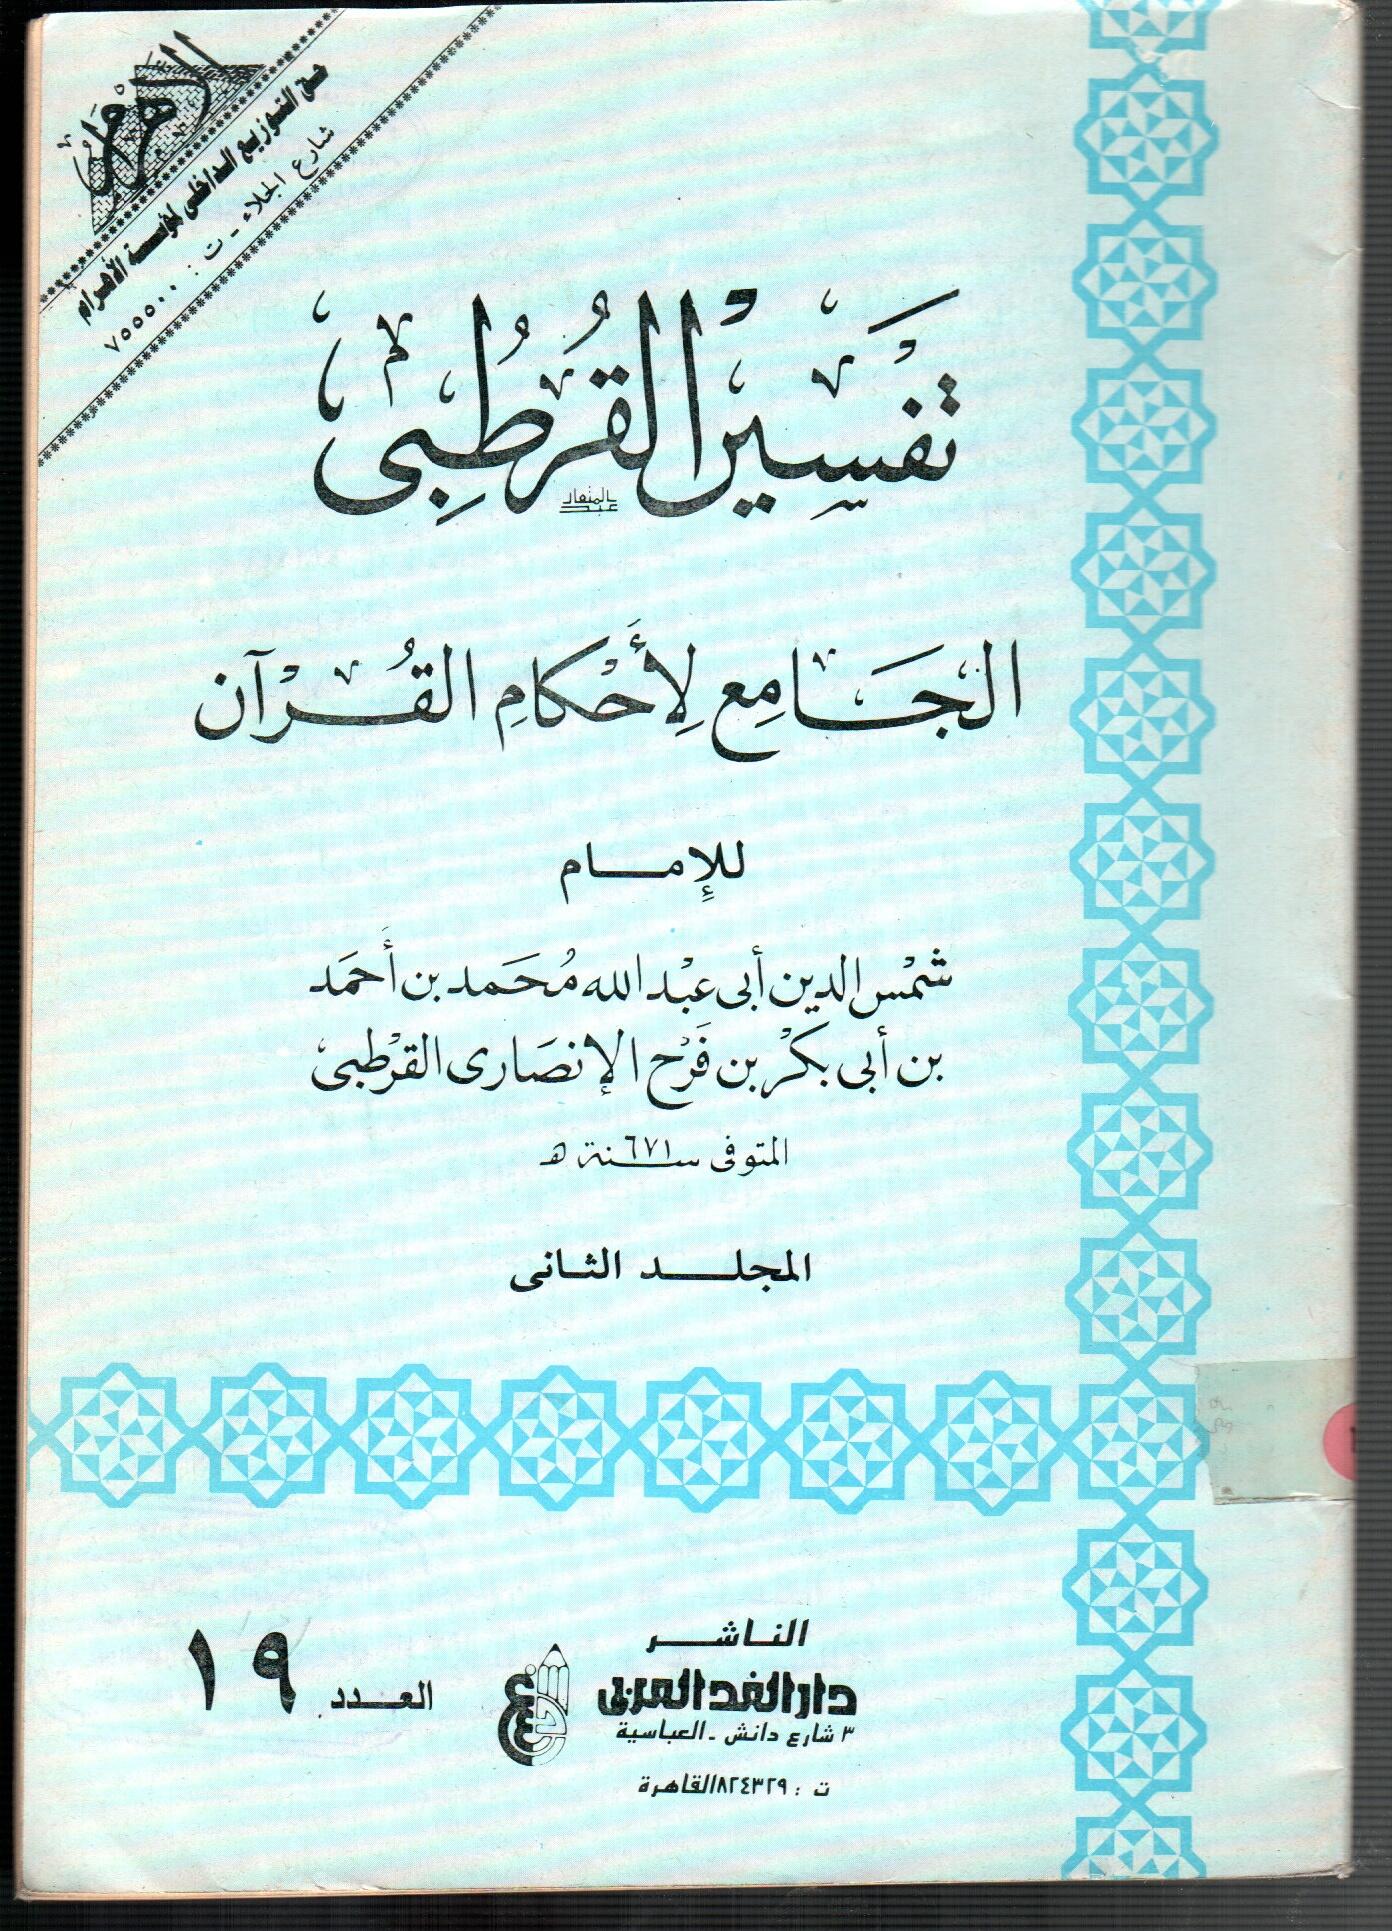 الأهرام
حق التوزيع الداخلى لمؤسسة الأهرام
شارع الجلاء - ت : ٧٥٥٥٠٠
تَفسِير القُرطُبِى
الجَامِع لِأَحْكامِ القُرْآن
للإمام
شمْس الدين أبى عبْد الله مُحَمد بن أَحمَد
بن أبى بكْر بن فَرْح الإنصَارى القرْطبى
المتوفى سنة ٦٧١ هـ
المجلد الثانى
الناشر
دار الغد العربى
٣ شارع دانش - العباسية
ت : ٨٢٤٣٢٩ القاهرة
العدد ١٩